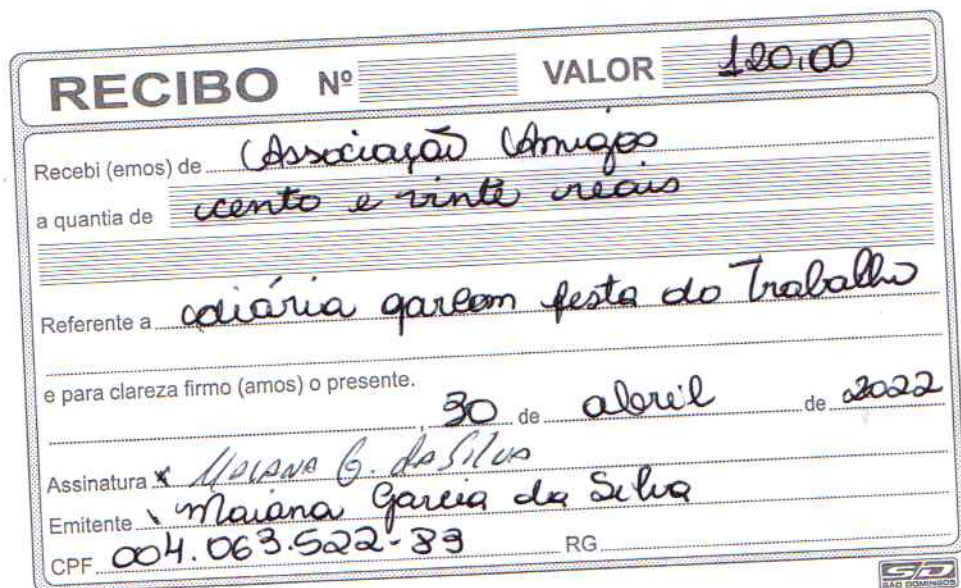 RECIBO Nº VALOR 120,00
Recebi (emos) de Associação Amigos
a quantia de cento e vinte reais
Referente a diária garçom festa do Trabalho
e para clareza firmo (amos) o presente.
, 30 de abril de 2022
Assinatura x Maiana G. da Silva
Emitente Maiana Garcia da Silva
CPF 004.063.522-39 RG
SD
SÃO DOMINGOS